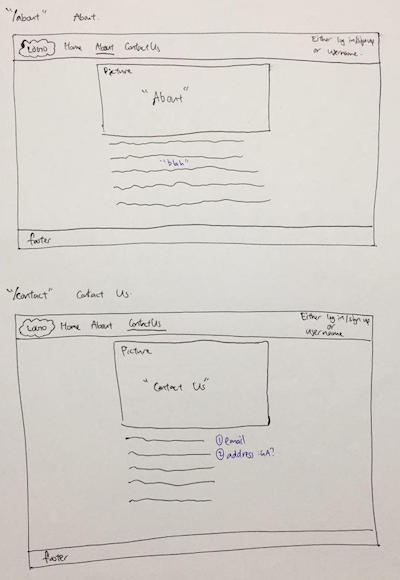 "/about" About.
Logo Home About Contact Us Either log in/sign up
or
username.
Picture
"About"
"blah"
footer
"/contact" Contact Us.
Logo Home About Contact Us Either log in/sign up
or
username
Picture
"Contact Us"
① email
② address :GA?
footer